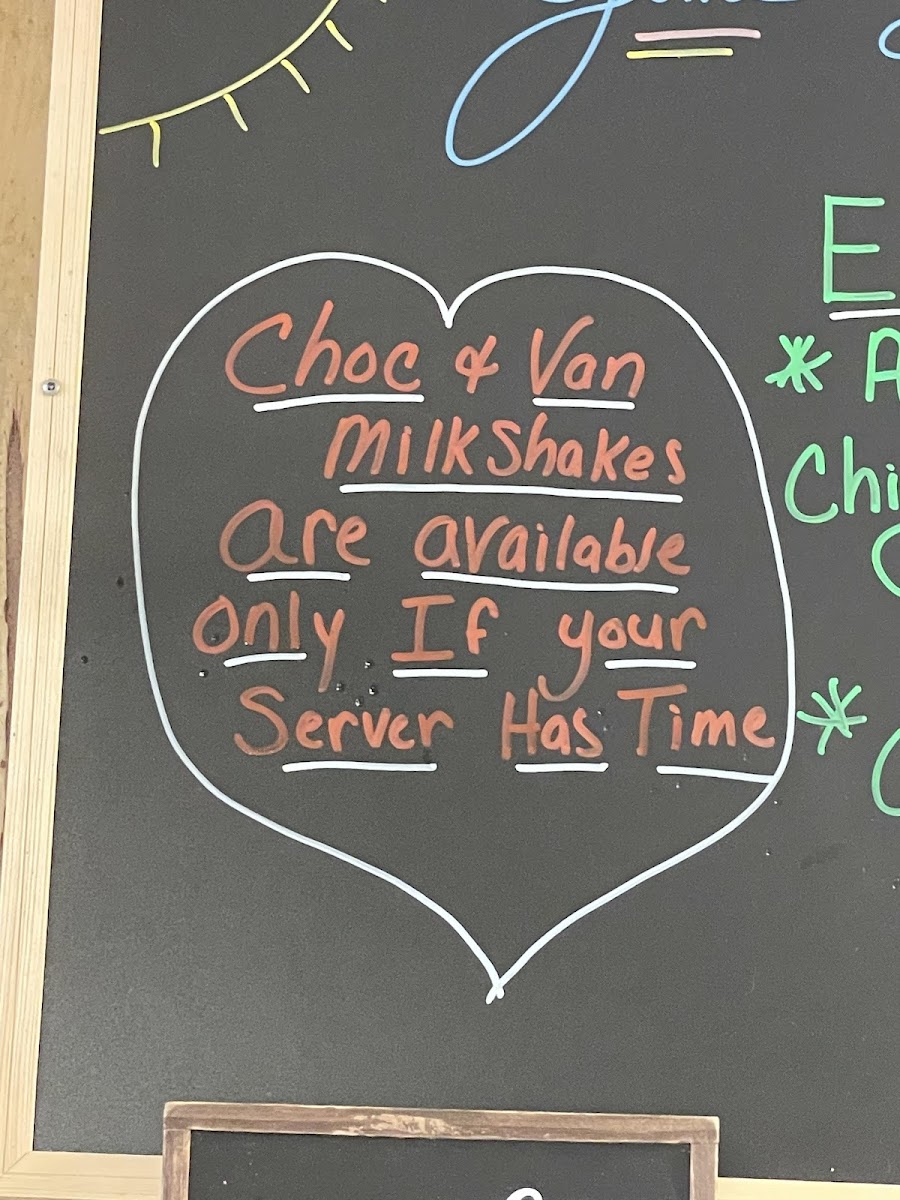 Choc & Van
Milkshakes
Are available
only If your
Server Has Time
E
* A
Chi
*